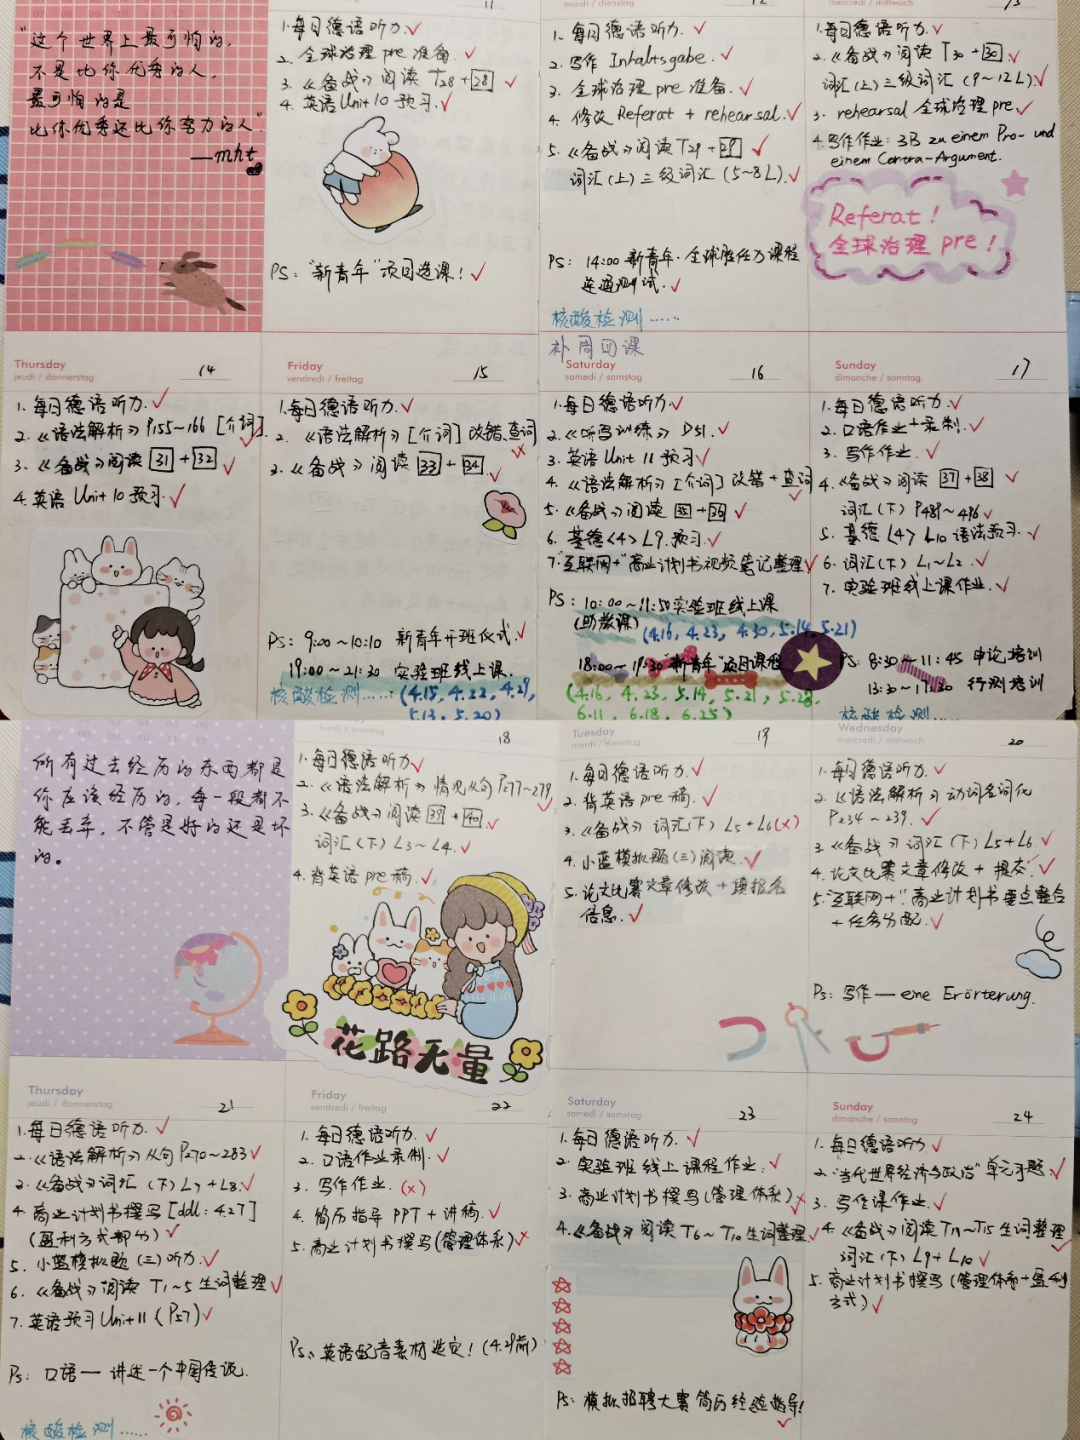 "这个世界上最可怕的,
不是比你优秀的人,
最可怕的是
比你优秀还比你努力的人".
—mht
11
1.每日德语听力.✓
2. 全球治理 pre 准备.✓
3. 《备战》阅读 T28+28 ✓
4. 英语 Unit 10 预习.✓
PS: "新青年"项目选课! ✓
mardi / dienstag
12
1. 每日德语听力.✓
2. 写作 Inhaltsgabe. ✓
3. 全球治理 pre 准备. ✓
4. 修改 Referat + rehearsal.✓
5. 《备战》阅读 T29+29 ✓
词汇(上)三级词汇 (5~8L).✓
PS: 14:00 新青年·全球胜任力课程
连通测试.✓
核酸检测……
mercredi / mittwoch
13
1.每日德语听力.✓
2.《备战》阅读 T30+30 ✓
词汇(上)三级词汇 (9~12L)✓
3. rehearsal 全球治理 pre.✓
4.写作作业: 3B zu einem Pro- und
einem Contra-Argument.
Referat!
全球治理 pre!
Thursday
jeudi / donnerstag
14
1.每日德语听力.✓
2.《语法解析》P155~166 [介词] ✓
3.《备战》阅读 31+32 ✓
4.英语 Unit 10 预习.✓
Friday
vendredi / freitag
15
1.每日德语听力.✓
2. 《语法解析》[介词] 改错、查词 ×
3. 《备战》阅读 33+34 ✓
PS: 9:00~10:10 新青年开班仪式.✓
19:00~21:30 实验班线上课.
核酸检测……: (4.15, 4.22, 4.29,
5.13, 5.20)
补周四课
Saturday
samedi / samstag
16
1.每日德语听力.✓
2.《听写训练》D51.✓
3.英语 Unit 11 预习✓
4. 《语法解析》[介词] 改错+查词 ✓
5.《备战》阅读 35+36 ✓
6. 基德<4> L9.预习.✓
7."互联网+"商业计划书视频笔记整理✓
PS: 10:00~11:50实验班线上课
(助教课) (4.16, 4.23, 4.30, 5.14, 5.21)
18:00~19:30"新青年"项目课程
(4.16, 4.23, 5.14, 5.21, 5.28,
6.11, 6.18, 6.25)
Sunday
dimanche / sonntag
17
1.每日德语听力.✓
2.口语作业+录制.✓
3.写作作业.✓
4.《备战》阅读 37+38 ✓
词汇(下) P489~496 ✓
5. 基德<4> L10 语法预习.✓
6. 词汇(下) L1~L2.✓
7. 实验班线上课作业.✓
PS: 8:30~11:45 申论培训
13:30~17:30 行测培训
核酸检测……
所有过去经历的东西都是
你应该经历的,每一段都不
能丢弃,不管是好的还是坏
的。
lundi / montag
18
1.每日德语听力✓
2.《语法解析》情况从句 P277~279 ✓
3.《备战》阅读 39+40 ✓
词汇(下)L3~L4.✓
4.背英语 pre 稿.✓
花路无量
Tuesday
mardi / dienstag
19
1.每日德语听力.✓
2. 背英语 pre 稿.✓
3.《备战》词汇(下) L5+L6(×)
4.小蓝模拟题(三)阅读.✓
5.论文比赛文章修改+填报名
信息.✓
Wednesday
mercredi / mittwoch
20
1.每日德语听力.✓
2.《语法解析》动词名词化
P234~239.✓
3.《备战》词汇(下) L5+L6.✓
4.论文比赛文章修改+提交.✓
5."互联网+":商业计划书要点整合
+任务分配.✓
PS: 写作 — eine Erörterung.
Thursday
jeudi / donnerstag
21
1.每日德语听力.✓
2.《语法解析》从句 P270~283✓
3.《备战》词汇 (下) L7+L8.✓
4. 商业计划书撰写 [ddl: 4.27]
(盈利方式部分)✓
5. 小蓝模拟题(三)听力.✓
6.《备战》阅读 T1~5 生词整理✓
7.英语预习 Unit 11 (P57)✓
PS: 口语— 讲述一个中国传说.
核酸检测……
Friday
vendredi / freitag
22
1.每日德语听力.✓
2.口语作业录制.✓
3. 写作作业.(×)
4.简历指导 PPT+讲稿.✓
5.商业计划书撰写(管理体系)×
PS: 英语配音素材选定! (4.29前)
Saturday
samedi / samstag
23
1.每日德语听力.✓
2.实验班线上课程作业.✓
3.商业计划书撰写(管理体系)×
4.《备战》阅读 T6~T10 生词整理✓
PS: 模拟招聘大赛简历经验指导!✓
Sunday
dimanche / sonntag
24
1.每日德语听力✓
2."当代世界经济与政治"单元习题.✓
3. 写作课作业.✓
4.《备战》阅读 T11~T15 生词整理✓
词汇(下) L9+L10 ✓
5.商业计划书撰写(管理体系+盈利
方式)✓